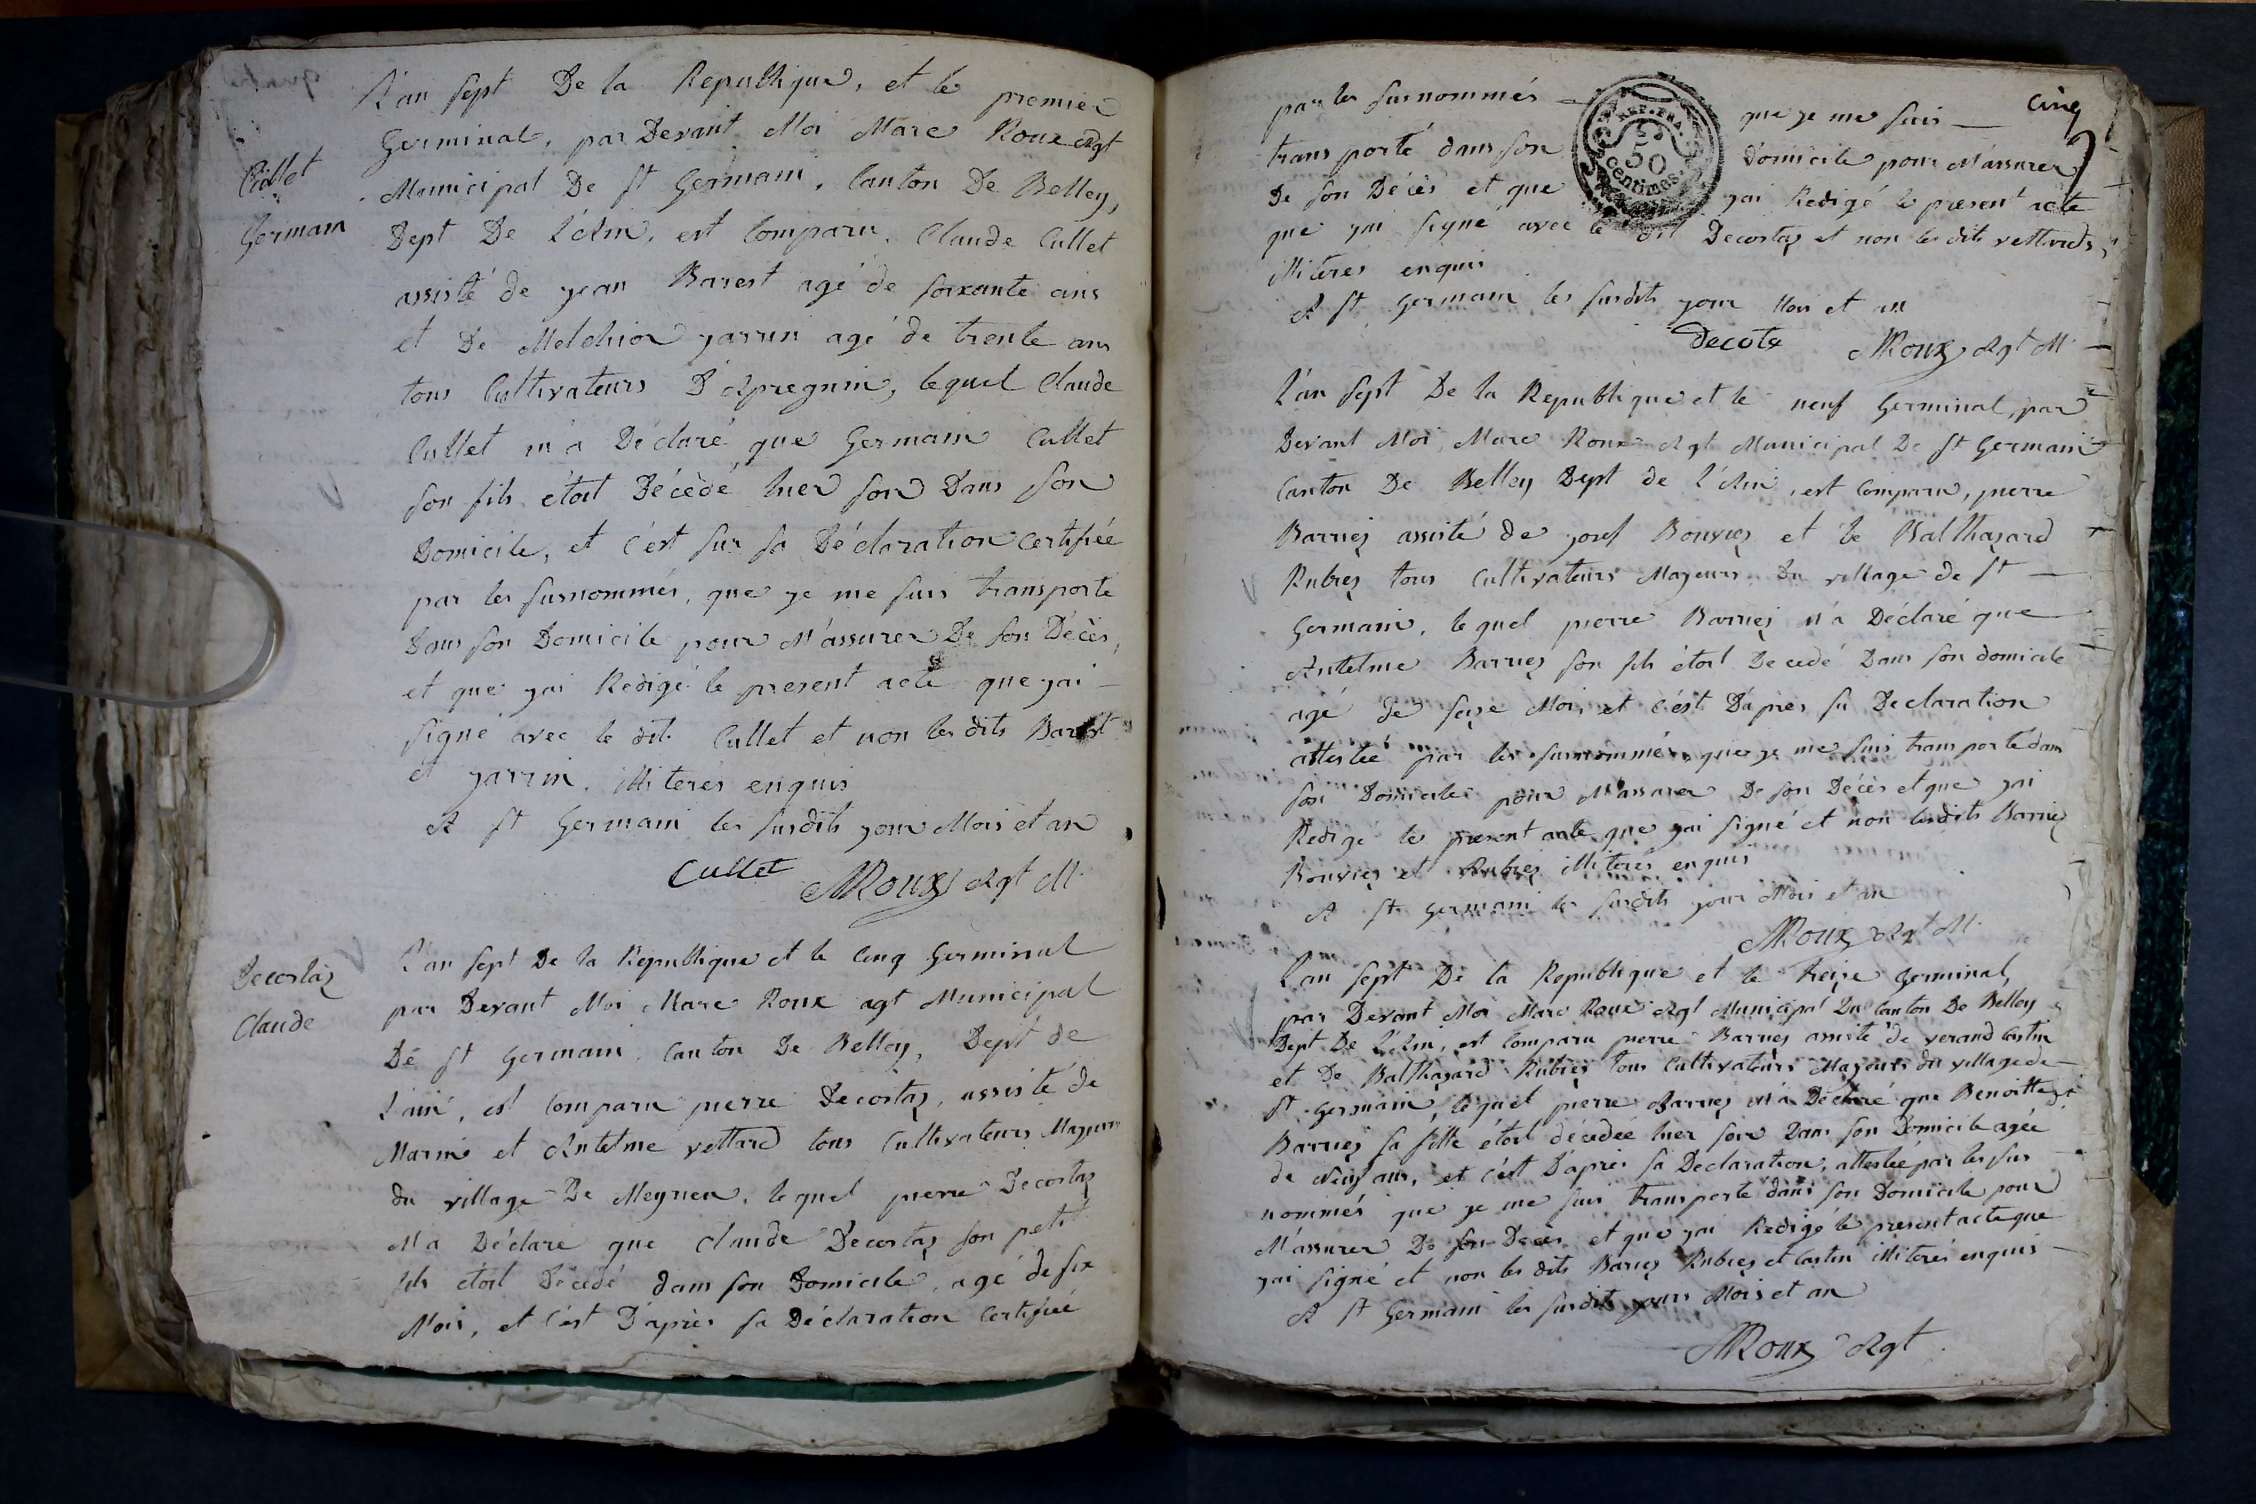 L'an sept De la Republique, et le premier
Germinal, par Devant Moi Marc Roux Agt
Cullet
Municipal De St Germain, Canton De Belley,
Germain
Dept De L'Ain, est Comparu, Claude Cullet
assisté de jean Barest agé de soixante ans
et De Melchior jarrin agé de trente ans
tous Cultivateurs D'Apregnin, lequel Claude
Cullet m'a Déclaré que Germain Cullet
son fils étoit Décédé hier soir Dans son
Domicile, et c'est sur sa Déclaration Certifiée
par les susnommés, que je me suis transporté
Dans son Domicile pour M'assurer De son Décès,
et que jai Redigé le present acte que jai
signé avec le dit Cullet et non les dits Barest
et jarrin, illiterés enquis
A St Germain les susdits jour Mois et an
Cullet MRoux Agt M.
L'an sept De la Republique et le Cinq Germinal
Decostaz
par Devant Moi Marc Roux agt Municipal
Claude
De St Germain Canton De Belley, Dept de
L'ain, est Comparu pierre Decostaz, assisté de
Marin et Antelme vettard tous Cultivateurs Majeurs
du village De Meyrieu, lequel pierre Decostaz
M'a Déclaré que Claude Decostaz son petit
fils étoit Décédé dans son Domicile, agé de six
Mois, et c'est D'après sa Déclaration Certifiée
cinq
par les susnommés que je me suis
REP. FRA.
50
Centimes.
transporté dans son Domicile pour M'assurer
De son Décès et que jai Redigé le present acte
que jai signé avec le dit Decostaz et non les dits vettards,
illiteres enquis
A St Germain les susdits jour Mois et an
Decota MRoux Agt M.
L'an sept De la Republique et le neuf Germinal, par
Devant Moi Marc Roux Agt Municipal De St Germain
Canton De Belley Dept de L'Ain, est Comparu, pierre
Barriez assisté de josef Bouviez et de Balthazard
Rubiez tous Cultivateurs Majeurs Du village de St
Germain, lequel pierre Barriez M'a Déclaré que
Antelme Barriez son fils étoit Decedé Dans son domicile
agé de seize Mois et c'est D'après sa Declaration
attestée par les susnommés que je me suis transporté dans
son Domicile pour M'assurer De son Décès et que jai
Redigé le present acte que jai signé et non lesdits Barriez
Bouviez et Rubiez illiterés enquis
A St Germain les susdits jour Mois et an
MRoux Agt M.
L'an sept De la Republique et le treize Germinal,
par Devant Moi Marc Roux Agt Municipal Du Canton De Belley
Dept De L'Ain, est Comparu pierre Barriez assisté de verand Castin
et De Balthazard Rubiez tous Cultivateurs Majeurs du village de
St Germain, lequel pierre Barriez M'a Déclaré que Benoitte
Barriez sa fille étoit décédée hier soir Dans son Domicile agée
de Neuf ans, et c'est D'après sa Declaration, attestée par les sus
nommés que je me suis transporté dans son Domicile pour
M'assurer De son Decès, et que jai Redigé le present acte que
jai signé et non les dits Barriez Rubiez et Castin illiterés enquis
A St Germain les susdit jours Mois et an
MRoux Agt